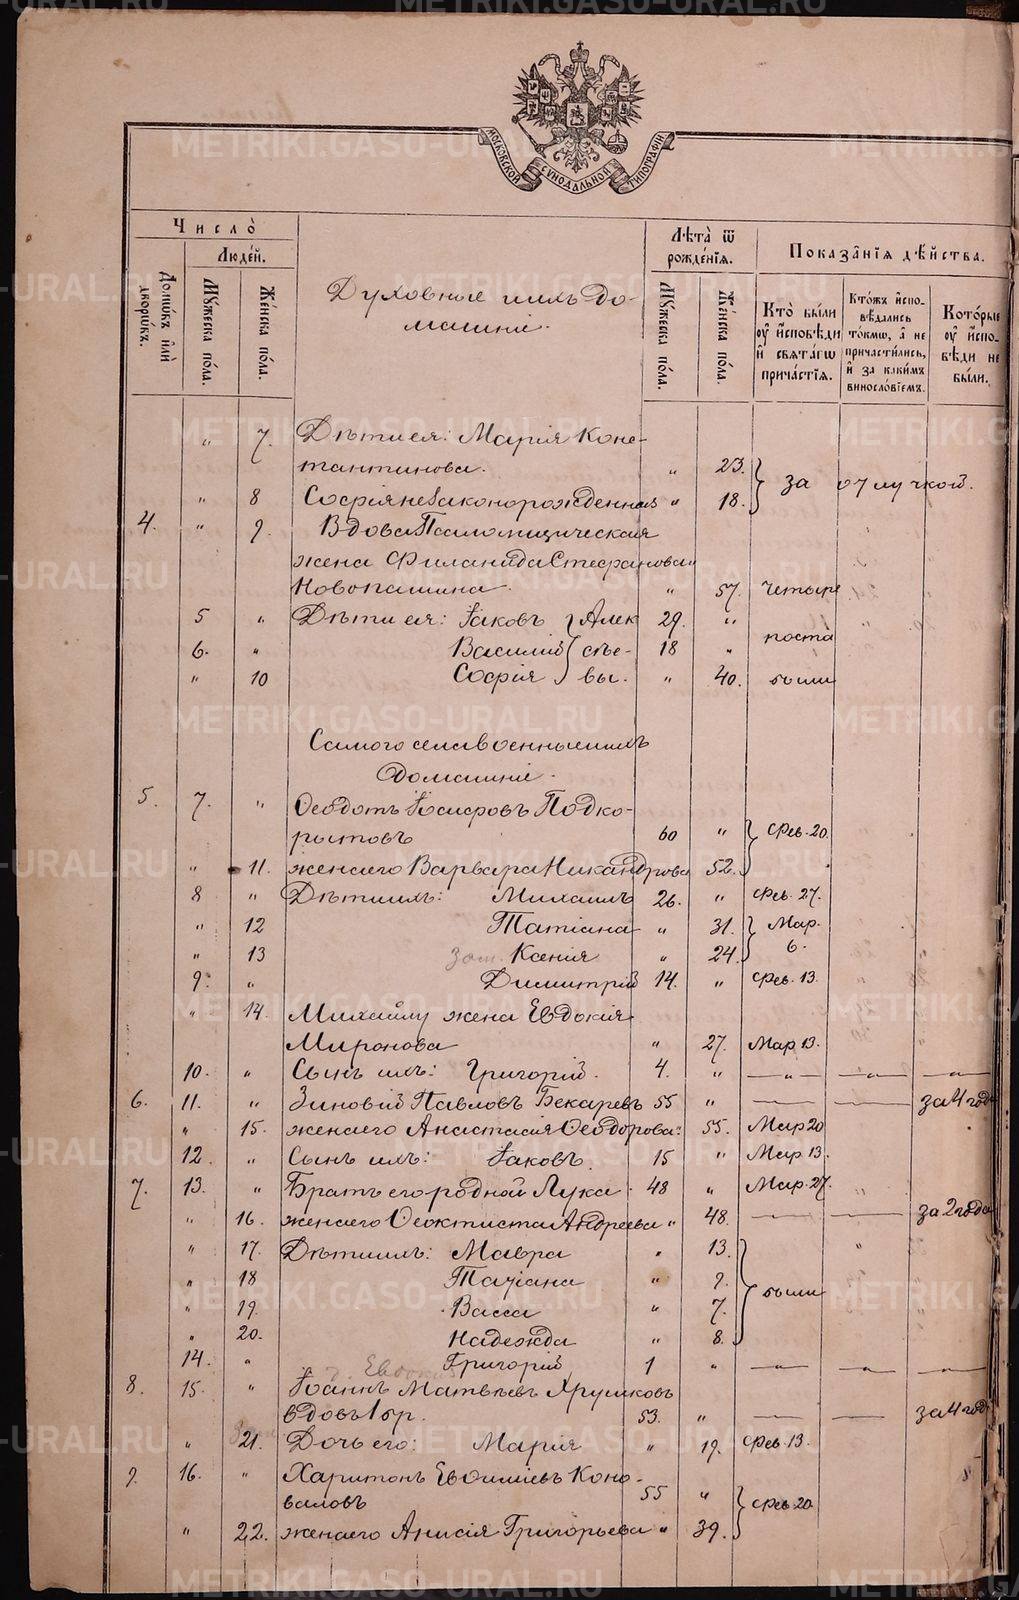 МОСКОВСКОЙ СѴНОДАЛЬНОЙ ТИПОГРАФІИ
Число̀
Люде́й.
Домѡ́въ и҆лѝ дворѡ́въ.
Мꙋжеска по́ла.
Же́нска по́ла.
Духовные и ихъ до-
машніе.
Лѣта̀ ѿ рожде́нїѧ.
Мꙋжеска по́ла.
Же́нска по́ла.
Показа̑нїѧ дѣ́йства.
Кто̀ бы́ли
оу҆ и҆сповѣ́ди
и҆ свѧта́гѡ
прича́стїѧ.
Кто́жъ и҆спо-
вѣ́дались
то́кмѡ, а҆ не
причасти́лись,
и҆ за каки́мъ
винословїемъ.
Кото́рые
оу҆ и҆спо-
вѣ́ди не
бы́ли.
" 7. Дѣти ея: Марія Конс-
тантинова. " 23. } за отлучкой.
" 8 Софія незаконорожденная " 18.
4. " 9. Вдова Псаломщическая
жена Филанида Стефанова
Новопашина. " 57. Четыре
5 " Дѣти ея: Іаковъ } Алек 29. "
поста
6. " Василій } сѣе- 18 "
" 10 Софія } вы. " 40. были
Самого села военные и ихъ
домашніе.
5. 7. " Ѳеодотъ Іосифовъ Подко-
рытовъ 60 " } Фев. 20.
" 11. жена его Варвара Никандрова 52.
8 " Дѣти ихъ: Михаилъ 26. " Фев. 27.
" 12 Татіана " 31. } Мар.
" 13 Ксенія " 24. 6.
9. " Димитрій 14. " Фев. 13.
" 14. Михаилу жена Евдокія
Миронова " 27. Мар. 13.
10. " Сынъ ихъ: Григорій. 4. " —"— —"— —"—
6. 11. " Зиновій Павловъ Бекаревъ 55 " — — за 4 года
" 15. жена его Анастасія Ѳеодорова 55. Мар 20
12. " Сынъ ихъ: Іаковъ. 15 " Мар 13.
7. 13. " Братъ его родной Лука 48 " Мар. 27.
" 16. жена его Ѳеоктиста Андреева " 48. — — за 2 года
" 17. Дѣти ихъ: Мавра " 13. } были
" 18 Татіана " 9.
" 19. Васса " 7.
" 20. Надежда " 8.
14. " Григорій 1 " —"— —"— —"—
8. 15. " Іоаннъ Матвѣевъ Хрушковъ
вдовъ 1 бр. 53. " — — за 4 год
" 21. Дочь его: Марія " 19. Фев. 13.
9. 16. " Харитонъ Евѳиміевъ Коно-
валовъ 55 " } Фев 20
" 22. жена его Анисія Григорьева " 39.
METRIKI.GASO-URAL.RU